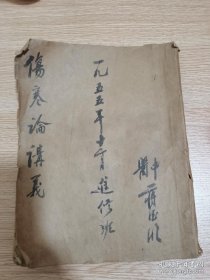 傷寒論講義
一九五五年十一月進修班
中醫